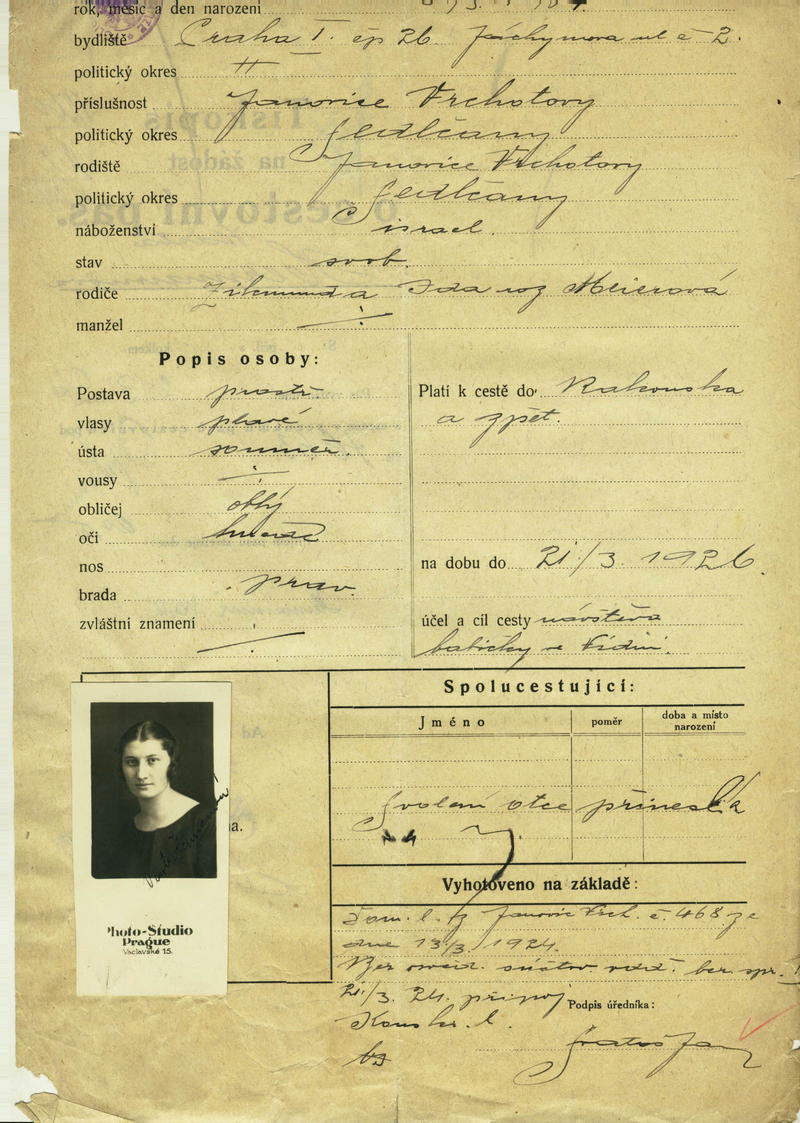 rok, měsíc a den narození
bydliště Praha I. čp 26 Jáchymova ul č 2.
politický okres
příslušnost Janovice Vrchotovy
politický okres Sedlčany
rodiště Janovice Vrchotovy
politický okres Sedlčany
náboženství israel.
stav svob.
rodiče Zikmund a Ida roz Meierová
manžel ÷
Popis osoby:
Postava prostř.
vlasy plavé
ústa souměr.
vousy ÷
obličej oblý
oči hnědé
nos
brada prav.
zvláštní znamení ÷
Platí k cestě do Rakouska
a zpět.
na dobu do 21/3. 1926.
účel a cíl cesty návštěva
babičky ve Vídni.
Spolucestující:
Jméno poměr doba a místo
narození
Svolení otce přinesla
Ad
na.
Photo-Studio
Prague
Václavské 15.
Vyhotoveno na základě:
Dom. l. Janovic Vrch. č. 468 ze
dne 13/3. 1924.
Ber. ber. spr. I
21/3. 24. připoj
Podpis úředníka:
Konskr. l.